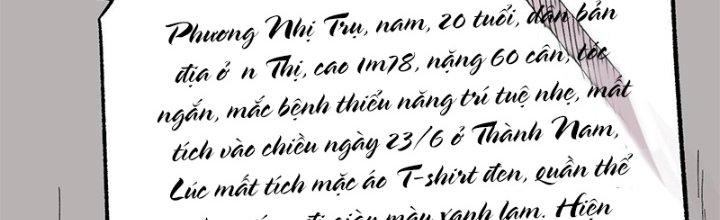 Phương Nhị Trụ, nam, 20 tuổi, dân bản
địa ở n Thị, cao 1m78, nặng 60 cân, tóc
ngắn, mắc bệnh thiểu năng trí tuệ nhẹ, mất
tích vào chiều ngày 23/6 ở Thành Nam,
Lúc mất tích mặc áo T-shirt đen, quần thể
đi giày màu xanh lam. Hiện